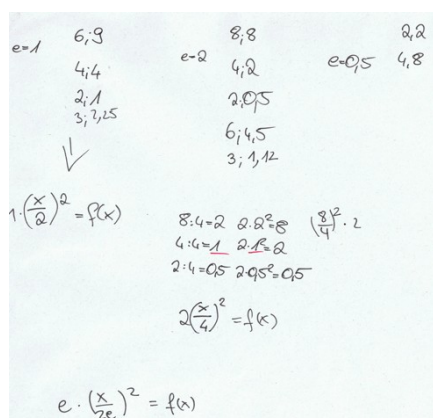 e=1
6;9
4;4
2;1
3;2,25
1·(x/2)² = f(x)
e=2
8;8
4;2
2;0,5
6;4,5
3;1,12
e=0,5
2,2
4,8
8:4=2 2·2²=8 (8/4)²·2
4:4=1 2·1²=2
2:4=0,5 2·0,5²=0,5
2(x/4)² = f(x)
e·(x/2e)² = f(x)